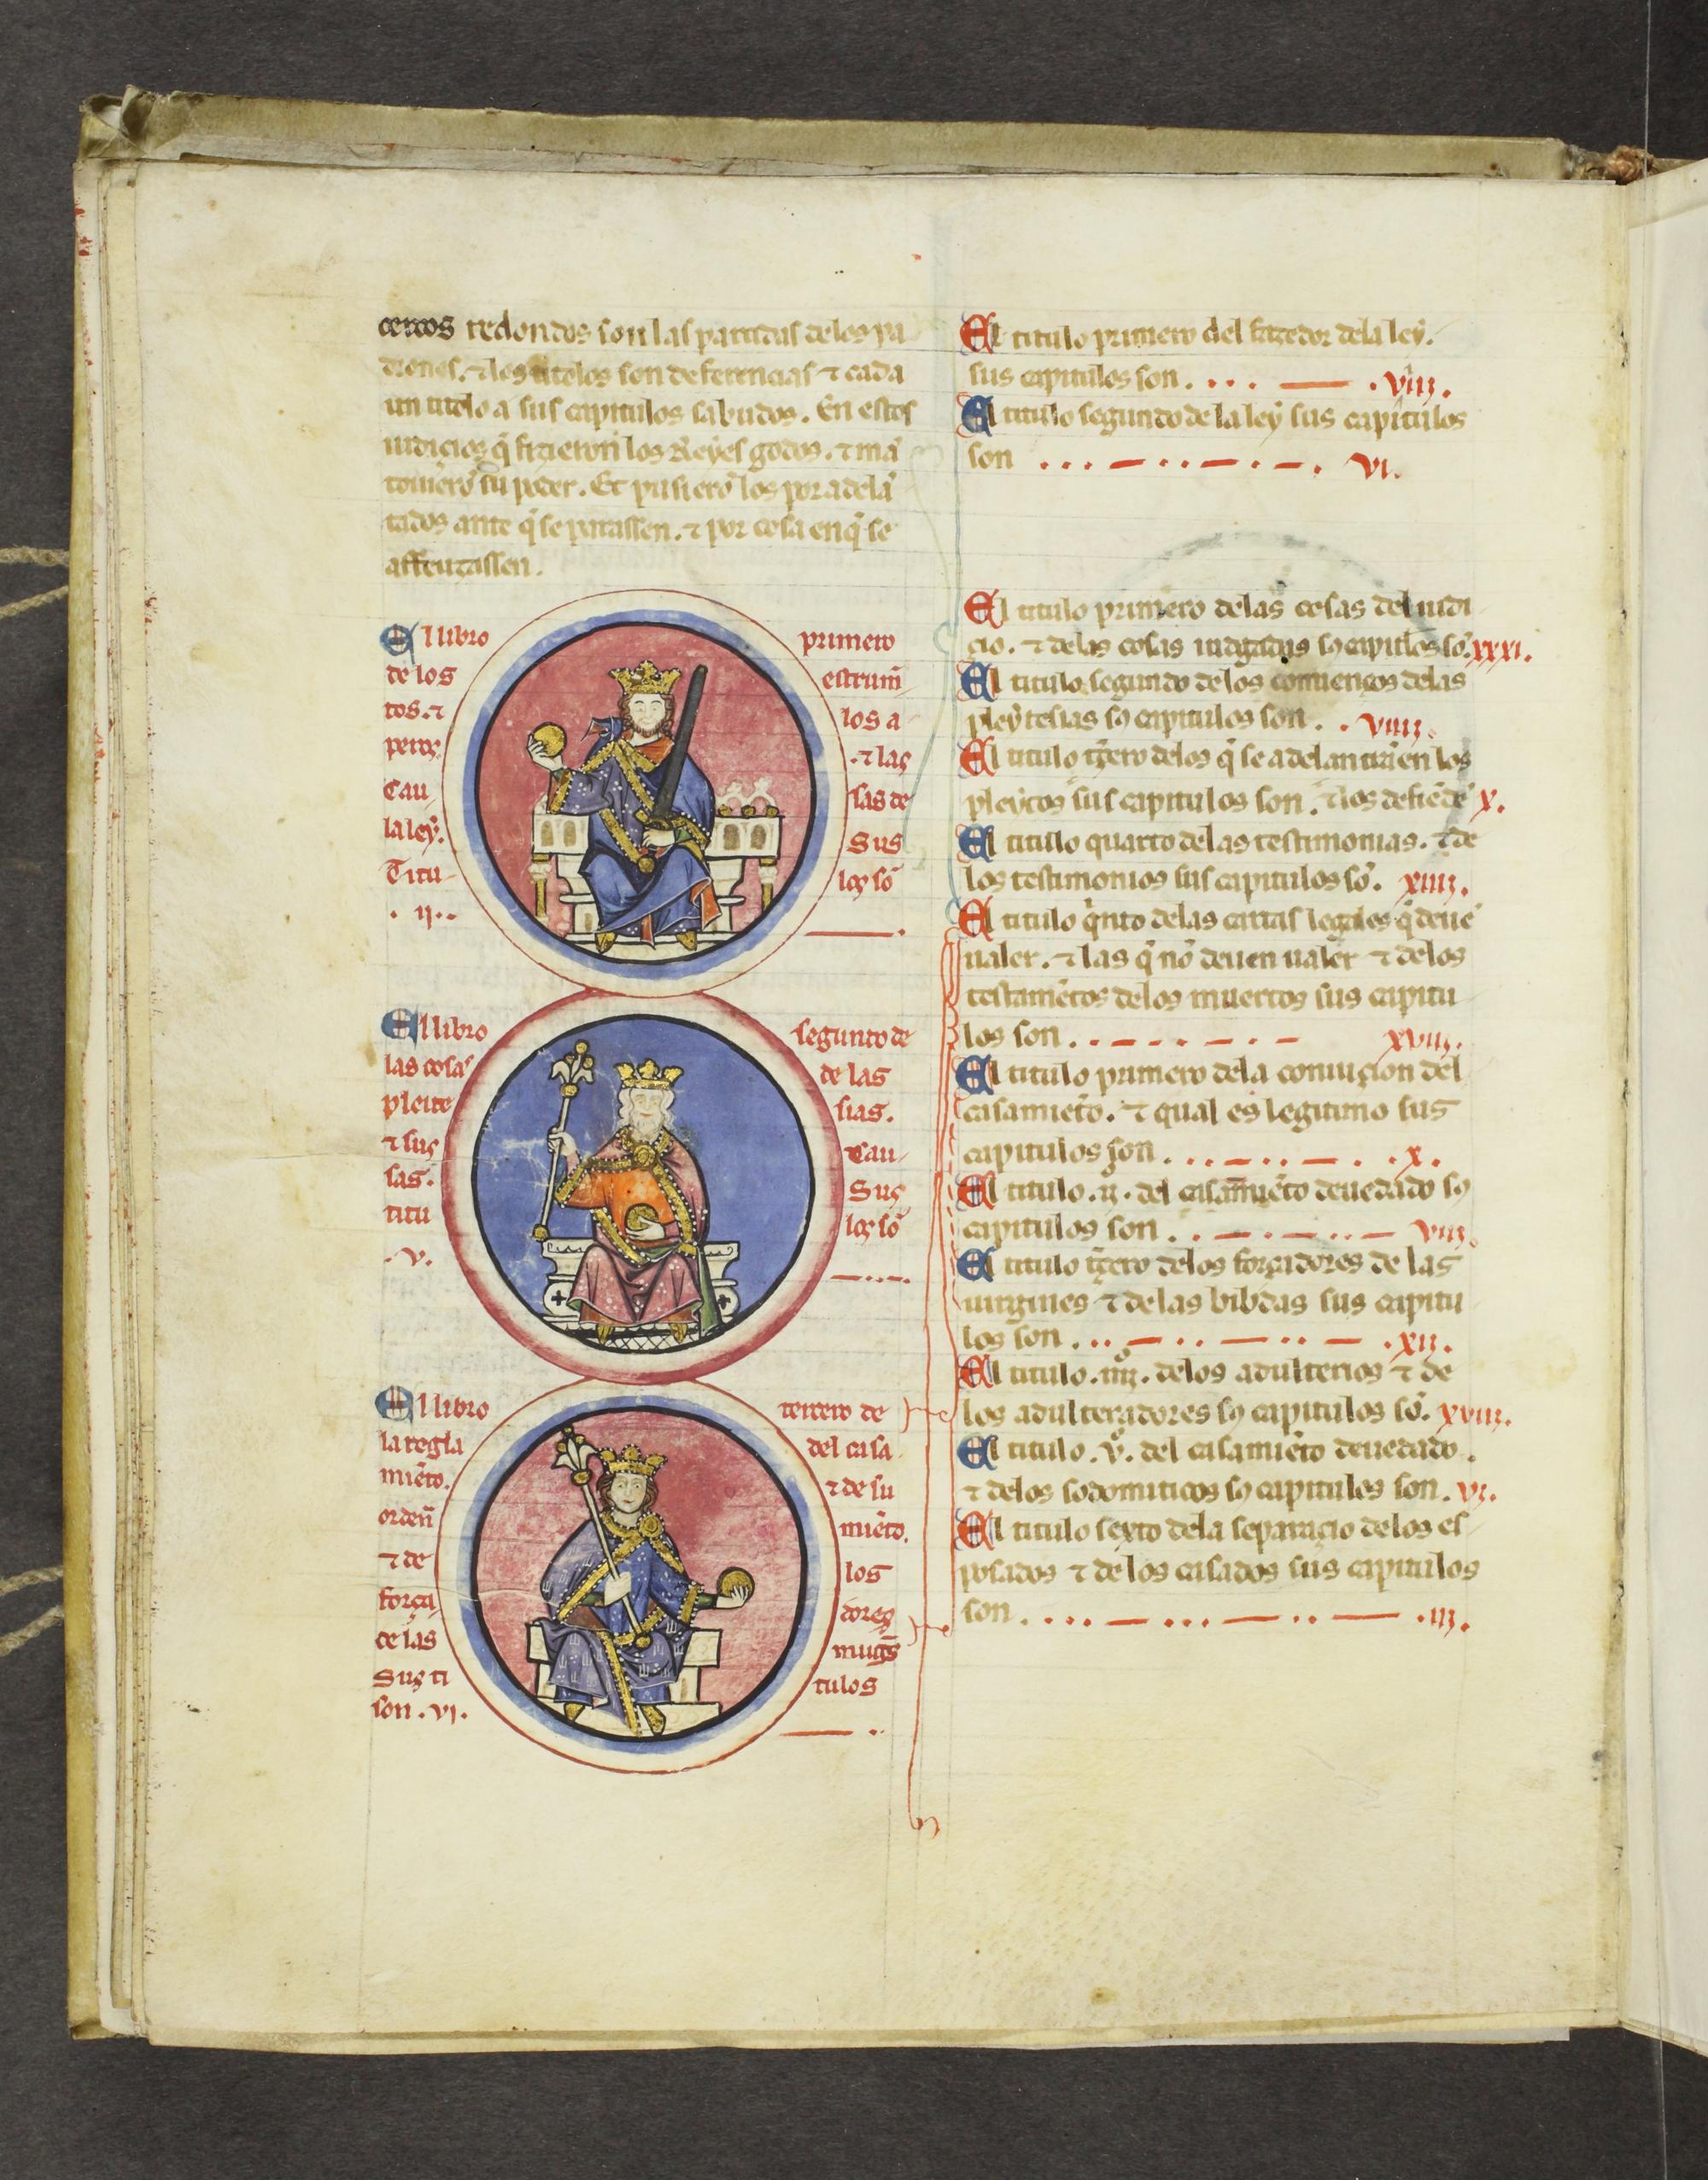 cercos redondos son las partidas delos pa
drones. ⁊ los titolos son deferencias ⁊ cada
un titolo a sus capitulos sabudos. En estos
iudiçios q̃ fizieron los Reyes godos. ⁊ mã
touierõ su poder. Et pusierõ los por adelã
tados ante q̃ se parassen. ⁊ por cosa en q̃ se
affeuzassen.
El libro primero
de los estrum̃
tos. ⁊ los a
peros. ⁊ las
Cau sas de
la ley. Sus
Titu los sõ
. ii..
El libro segundo de
las cosas de las
pleite sias.
⁊ sus Cau
sas. Sus
titu los sõ
. v.
El libro tercero de
la regla del casa
miẽto. ⁊ de su
ordeñ miẽto.
⁊ de los
força dores
de las mugs̃
Sus ti tulos
son . vi.
El titulo primero del fazedor dela ley.
sus capitulos son . . . . . viiii.
El titulo segundo de la ley sus capitulos
son . . . vi.
El titulo primero delas cosas del iudi
çio. ⁊ delas cosas iudgadas sꝯ capitlos sõ. xxxi.
El titulo segundo de los comienços delas
pleytesias sꝯ capitulos son . . viiii.
El titulo t̃çero delos q̃ se adelantan en los
pleytos sus capitulos son. ⁊ los defiẽdẽ x.
El titulo quarto delas testimonias. ⁊ de
los testimonios sus capitulos sõ. xiiii.
El titulo q̃nto delas cartas legales q̃ deuẽ
ualer. ⁊ las q̃ nõ deuen ualer ⁊ delos
testamẽtos delos muertos sus capitu
los son . . . xviiii.
El titulo primero dela coniunçion del
casamiẽto. ⁊ qual es legitimo sus
capitulos son . . . . x.
El titulo .ii. del casamiẽto deuedado sꝯ
capitulos son . . . viii.
El titulo t̃çero delos forçadores de las
uirgines ⁊ delas bibdas sus capitu
los son . . . . xii.
El titulo .iiiiº. delos adulterios ⁊ de
los adulteradores sꝯ capitulos sõ. xviii.
El titulo .vº. del casamiẽto deuedado.
⁊ delos sodomiticos sꝯ capitulos son. vi.
El titulo sexto dela separaçio delos es
posados ⁊ de los casados sus capitulos
son . . . . iii.